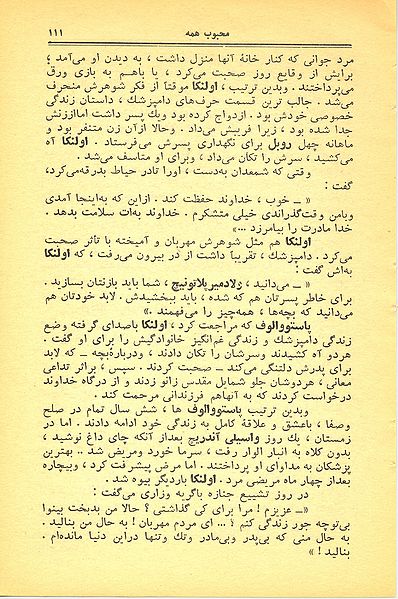 محبوب همه ۱۱۱
مرد جوانی که کنار خانهٔ آنها منزل داشت ، به دیدن او می‌آمد ؛
برایش از وقایع روز صحبت می‌کرد ، یا باهم به بازی ورق
می‌پرداختند . وبدین ترتیب ، اولنکا موقتاً از فکر شوهرش منحرف
می‌شد . جالب ترین قسمت حرف‌های دامپزشك ، داستان زندگی
خصوصی خودش بود . ازدواج کرده بود ویك پسر داشت اماازنش
جدا شده بود ، زیرا فریبش می‌داد . وحالا ازآن زن متنفر بود و
ماهانه چهل روبل برای نگهداری پسرش می‌فرستاد . اولنکا آه
می‌کشید ، سرش را تکان می‌داد ، وبرای او متاسف می‌شد .
وقتی که شمعدان به‌دست ، اورا تادر حیاط بدرقه‌می‌کرد،
گفت :
« ــ خوب ، خداوند حفظت کند . ازاین که به‌اینجا آمدی
وبامن وقت‌گذراندی خیلی متشکرم . خداوند به‌ات سلامت بدهد .
خدا مادرت را بیامرزد ...»
اولنکا هم مثل شوهرش مهربان و آمیخته با تأثر صحبت
می‌کرد . دامپزشك ، تقریباً داشت از در بیرون می‌رفت ، که اولنکا
به‌اش گفت :
« ــ می‌دانید ، ولادمیرپلاتونیچ ، شما باید بازنتان بسازید .
برای خاطر پسرتان هم که شده ، باید ببخشیدش . لابد خودتان هم
می‌دانید که بچه‌ها ، همه‌چیز را می‌فهمند .»
پاستووالوف که مراجعت کرد ، اولنکا باصدای گرفته وضع
زندگی دامپزشك و زندگی غم‌انگیز خانوادگیش را برای او گفت .
هردو آه کشیدند وسرشان را تکان دادند ، ودربارهٔ‌بچه ــ که لابد
برای پدرش دلتنگی می‌کند ــ صحبت کردند . سپس ، براثر تداعی
معانی ، هردوشان جلو شمایل مقدس زانو زدند و از درگاه خداوند
درخواست کردند که به آنهاهم فرزندانی مرحمت کند .
وبدین ترتیب پاستووالوف ها ، شش سال تمام در صلح
وصفا ، باعشق و علاقه کامل به زندگی خود ادامه دادند . اما در
زمستان ، یك روز واسیلی آندریچ بعداز آنکه چای داغ نوشید ،
بدون کلاه به انبار الوار رفت ، سرما خورد ومریض شد .. بهترین
پزشکان به مداوای او پرداختند . اما مرض پیشرفت کرد ، وبیچاره
بعداز چهار ماه مریضی مرد . اولنکا باردیگر بیوه شد .
در روز تشییع جنازه باگریه وزاری می‌گفت :
«ــ عزیزم ! مرا برای کی گذاشتی ؟ حالا من بدبخت بینوا
بی‌توچه جور زندگی کنم ؟ ... ای مردم مهربان ! به حال من بنالید .
به حال منی که بی‌پدر وبی‌مادر وتك وتنها دراین دنیا مانده‌ام .
بنالید ! »